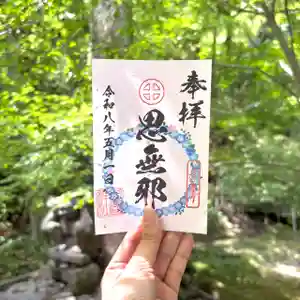 奉拝
思無邪
令和八年五月一日